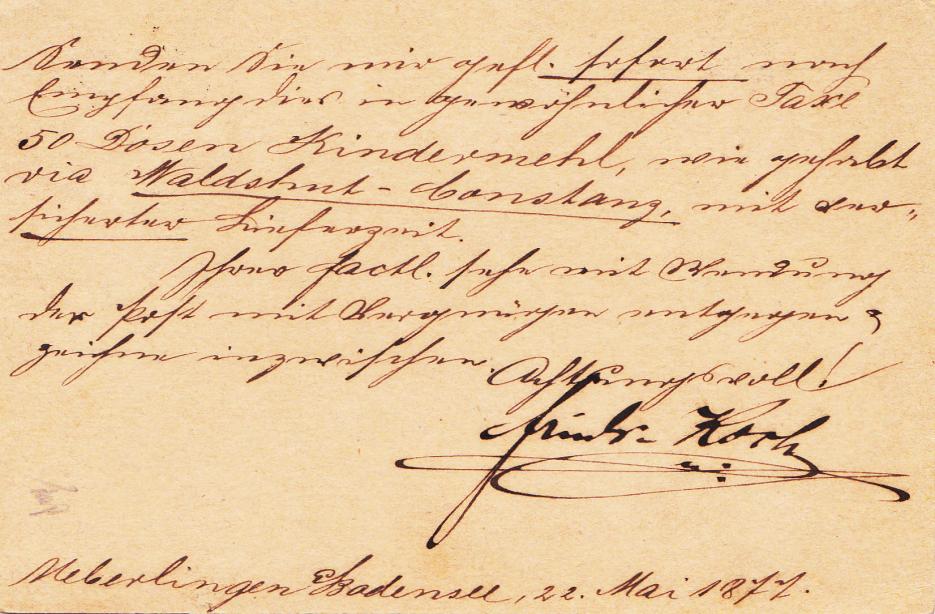 Senden Sie mir gefl. sofort nach
Empfang dies in gewöhnlicher Taxe
50 Dosen Kindermehl, wie gehabt
via Waldshut - Constanz, mit ver-
sicherter Lieferzeit.
Ihrer factl. sehe mit Wendung
der Post mit Vergnügen entgegen &
zeichne inzwischen.
Achtungsvoll!
Friedr. Koch
Ueberlingen Bodensee, 22. Mai 1877.